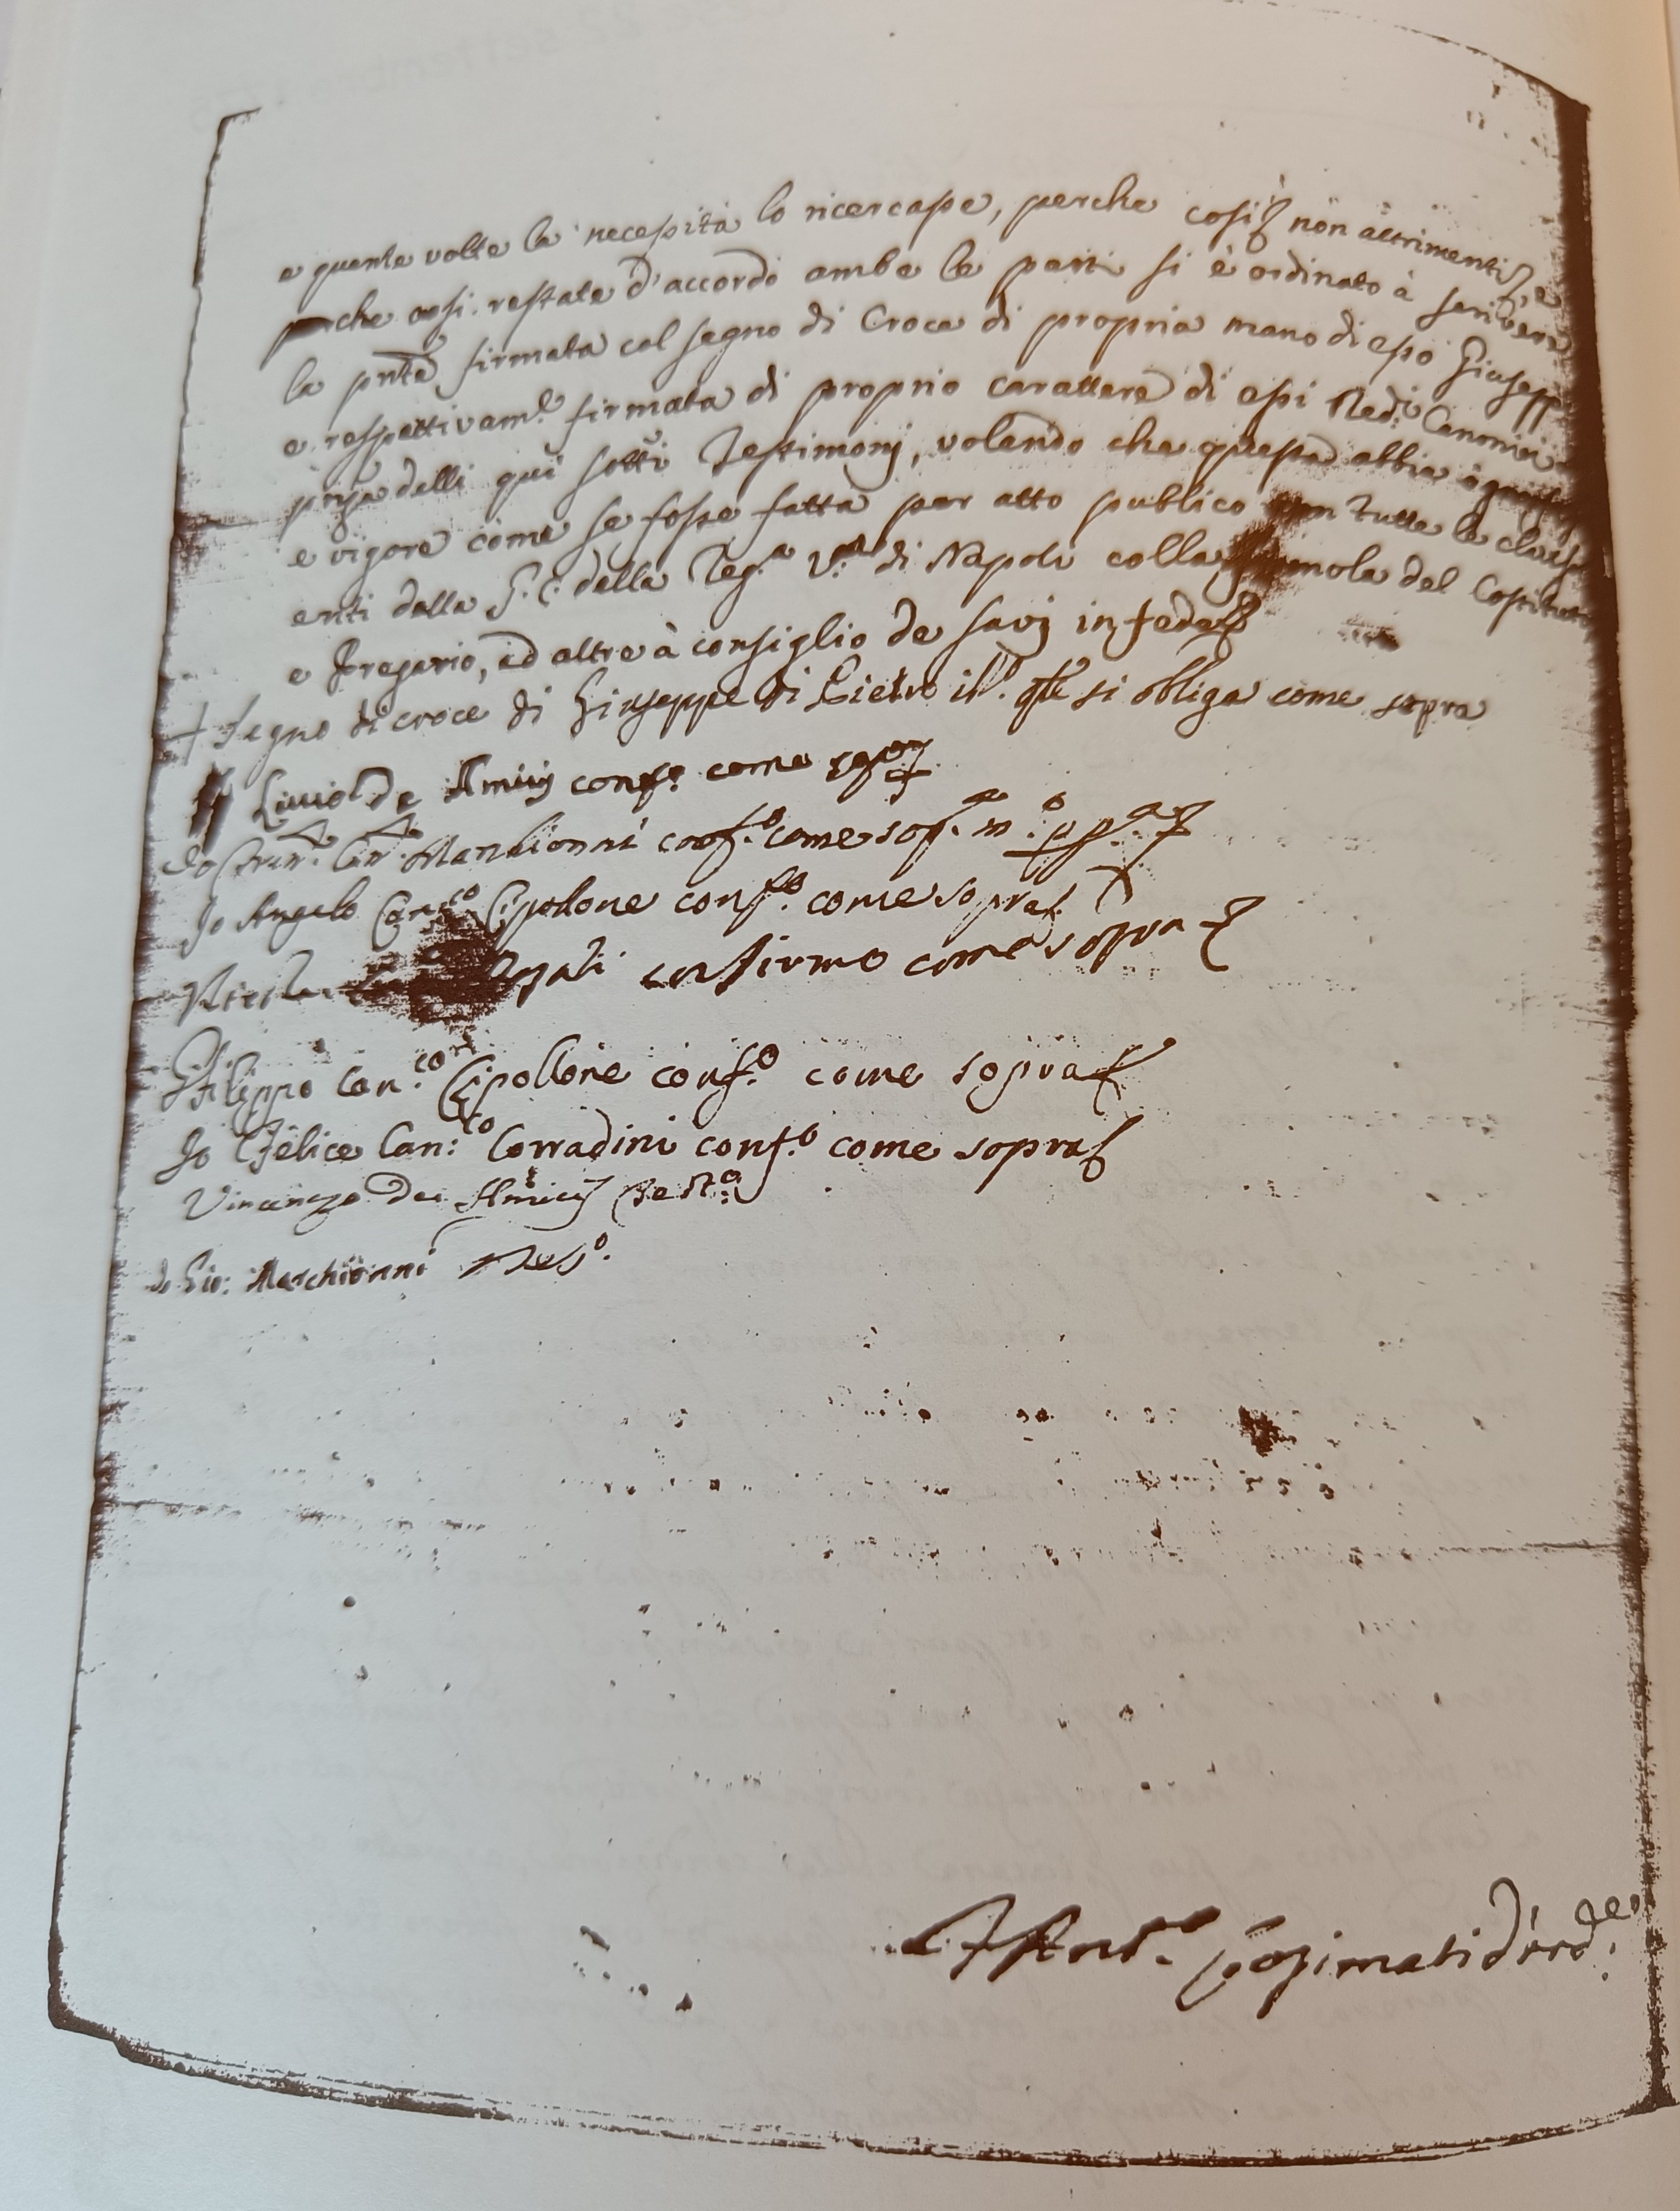 e quante volte la necessità lo ricercasse, perche cosi non altrimenti, e
perche cosi restate d'accordo ambe le parti si è ordinato à scrivere
la pnte firmata col segno di Croce di propria mano di esso Giusepp
e respettivam.e firmata di proprio carattere di essi Red.i Canonici
delli quì sotti Testimonj, volendo che questa abbia
e vigore come se fosse fatta per atto publico con tutte le
enti della G. C. della Reg.a V.a di Napoli colla del Costituto
e Pregario, ed altre à consiglio de savj in fede
+ Segno di croce di Giuseppe di Pietro il qle si obliga come sopra
Livio De Amicij conf.o come sop.a
Io Can. conf.o come sop.a m.o pp.a
Io Angelo Can.co Cipollone conf.o come sopra
confirmo come sopra
Filippo Can.co Cipollone conf.o come sopra
Io Felice Can:co Corradini conf.o come sopra
Vincenzo De Amicij Test.o
Io Gio: Marchionni Tes.o